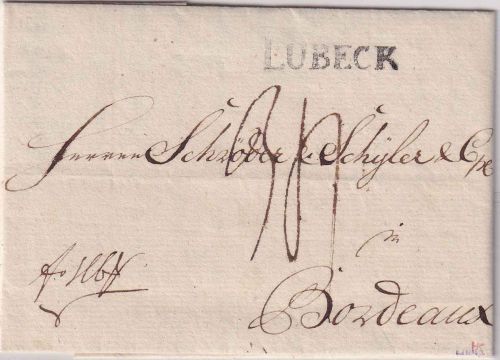 LUBECK
Herren Schröder & Schÿler & Co
in
Bordeaux